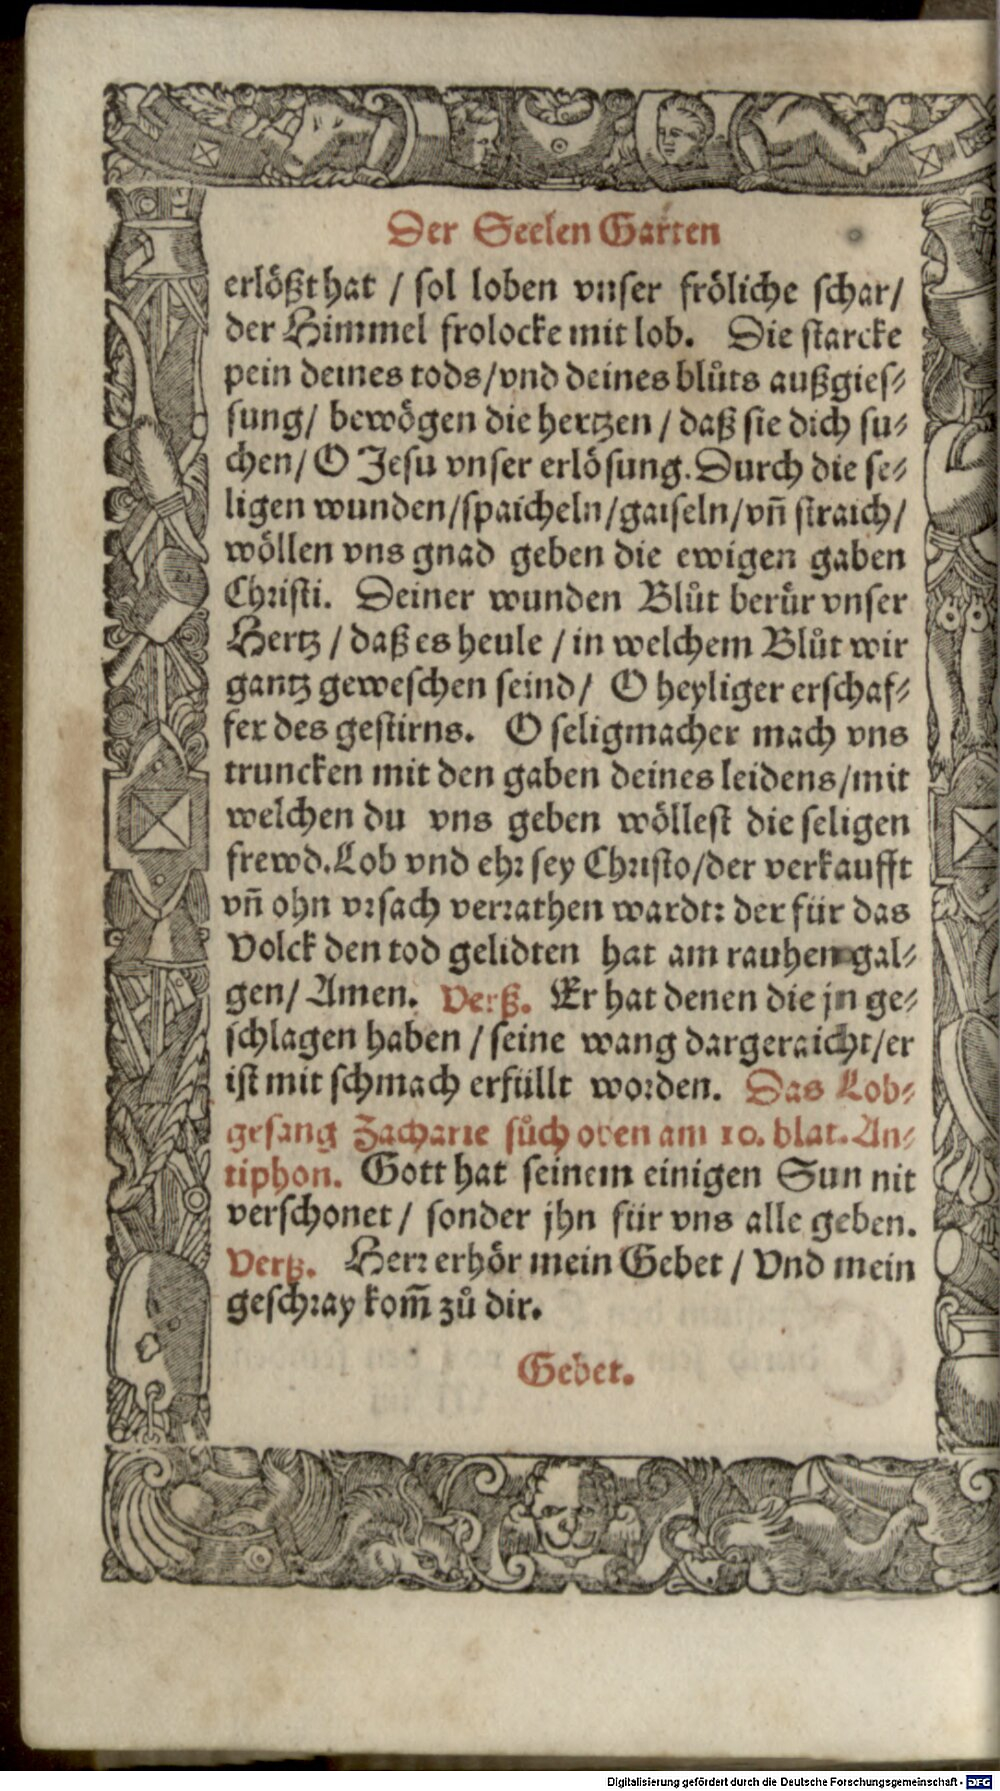 Der Seelen Garten
erlößt hat / sol loben vnser fröliche schar/
der Himmel frolocke mit lob. Die starcke
pein deines tods/vnd deines blůts außgies-
sung/ bewögen die hertzen / daß sie dich su-
chen/ O Jesu vnser erlösung. Durch die se-
ligen wunden/spaicheln/gaiseln/vñ straich/
wöllen vns gnad geben die ewigen gaben
Christi. Deiner wunden Blůt berür vnser
Hertz / daß es heule / in welchem Blůt wir
gantz geweschen seind/ O heyliger erschaf-
fer des gestirns. O seligmacher mach vns
truncken mit den gaben deines leidens/mit
welchen du vns geben wöllest die seligen
frewd. Lob vnd ehr sey Christo/der verkaufft
vñ ohn vrsach verrathen wardt: der für das
Volck den tod gelidten hat am rauhen gal-
gen/ Amen. Verß. Er hat denen die jn ge-
schlagen haben / seine wang dargeraicht/er
ist mit schmach erfüllt worden. Das Lob-
gesang Zacharie sůch oben am 10. blat. An-
tiphon. Gott hat seinem einigen Sun nit
verschonet / sonder jhn für vns alle geben.
Vertz. Herr erhör mein Gebet / Vnd mein
geschray kom̄ zů dir.
Gebet.
Digitalisierung gefördert durch die Deutsche Forschungsgemeinschaft - DFG